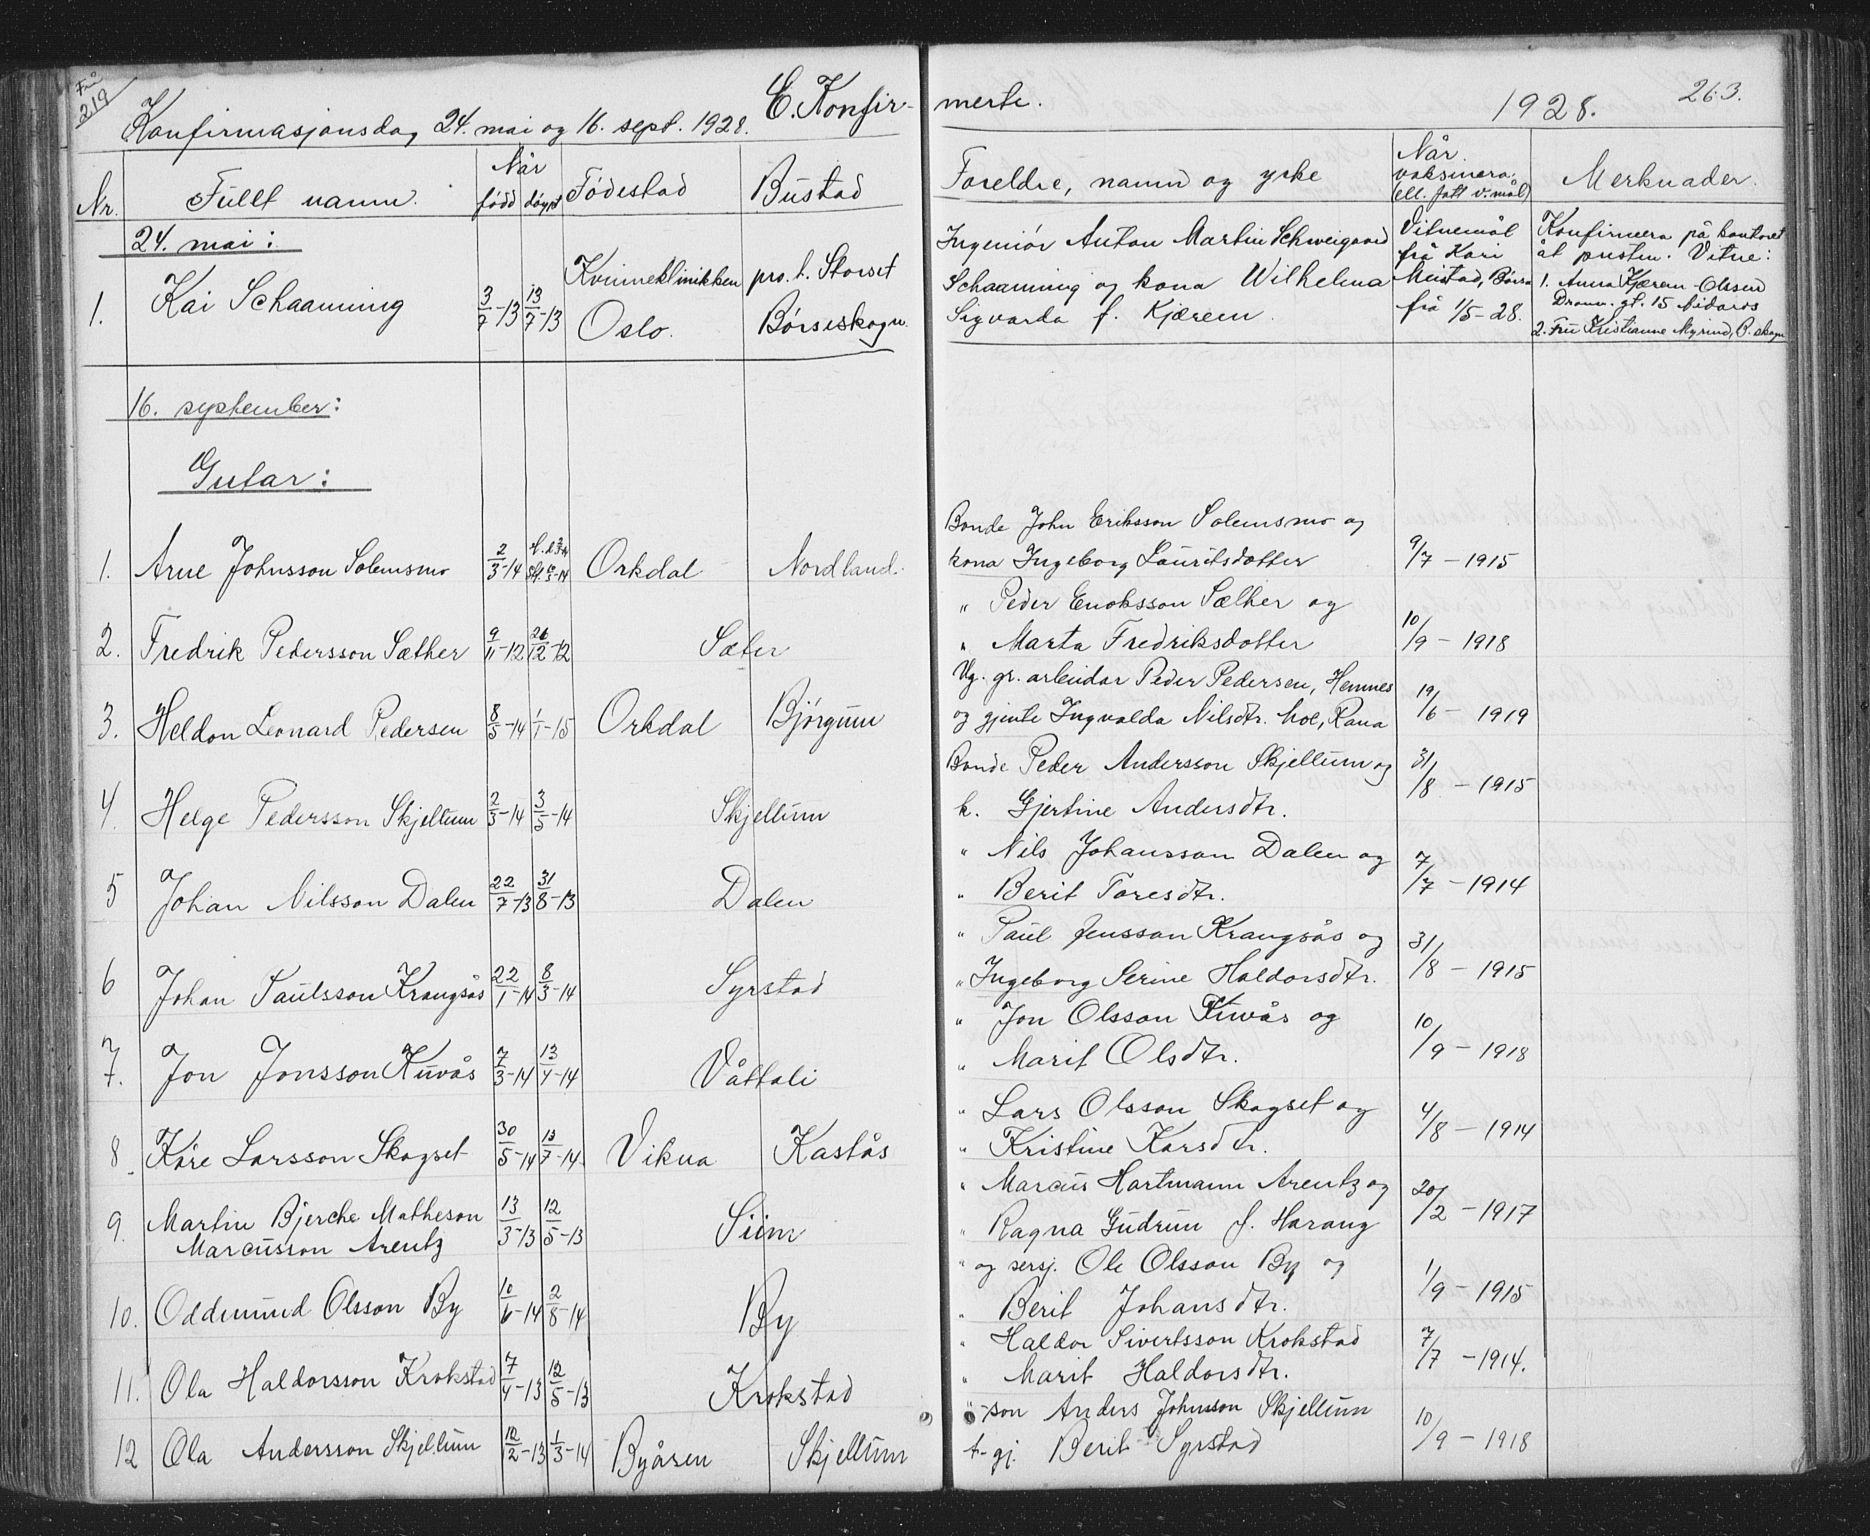 Frå 219
E. Konfir- merte.
1928.
263.
Konfirmasjonsdag 24. mai og 16. sept. 1928.
Nr. Fullt namn. Når fødd døypt Fødestad Bustad Foreldre, namn og yrke Når vaksinera. (ell. fått v. mål) Merknader.
24. mai:
1. Kai Schaanning 3/7-13 13/7-13 Kvinneklinikken Oslo. pro. t. Storset Børseskogn.
Ingeniør Anton Martin Schweigaard
Schaanning og kona Wilhelma
Sigvarda f. Kjærem.
Vitnemål
frå Kari
Meistad, Børsa
frå 1/5-28.
Konfirmera på kontoret
åt presten. Vitne:
1. Anna Kjærem-Olsen
Dronn. gt. 15 Nidaros
2. Fru Kristianne Myrind, B. skogn
16. september:
Gutar:
Bonde John Eriksson Solemsmo og
1. Arne Johnsson Solemsmo 2/3-14 Orkdal Nordland. kona Ingeborg Lauritsdotter 9/7-1915
" Peder Enoksson Sæther og
2. Fredrik Pedersson Sæther 9/11-12 26/12-12 Sæter " Marta Fredriksdotter 10/9-1918
Vg. gr. arbeidar Peder Pedersen, Hemnes
3. Heldon Leonard Pedersen 8/5-14 1/1-15 Orkdal Bjørgum og gjente Ingvalda Nilsdtr. Moe, Rana 19/6-1919
Bonde Peder Andersson Skjellum og
4. Helge Pedersson Skjellum 2/3-14 3/5-14 Skjellum k. Gjertine Andersdtr. 31/8-1915
" Nils Johansson Dalen og
5 Johan Nilsson Dalen 22/7-13 31/8-13 Dalen " Berit Toresdtr. 7/7-1914
" Paul Jensson Krangsås og
6 Johan Paulsson Krangsås 22/1-14 8/3-14 Syrstad " Ingeborg Serine Haldorsdtr. 31/8-1915
" Jon Olsson Kuvås og
7. Jon Jonsson Kuvås 7/3-14 13/4-14 Våttali " Marit Olsdtr. 10/9-1918
" Lars Olsson Skogset og
8. Kåre Larsson Skogset 30/5-14 13/7-14. Vikna Kastås " Kristine Karsdtr. 4/8-1914
" Marcus Hartmann Arentz og
9. Martin Bjerche Matheson Marcusson Arentz 13/3-13 12/5-13 Siim " Ragna Gudrun f. Harang 20/2-1917
" og sersj. Ole Olsson By og
10. Oddmund Olsson By 10/6-14 2/8-14 By " Berit Johansdtr. 1/9-1915
" Haldor Sivertsson Krokstad
11. Ola Haldorsson Krokstad 7/4-13 12/5-13 Krokstad " Marit Haldorsdtr. 7/7-1914.
"-son Anders Johnsson Skjellum
12 Ola Andersson Skjellum 12/12-13 1/3-14 Byåsen Skjellum t-gj. Berit Syrstad 10/9-1918